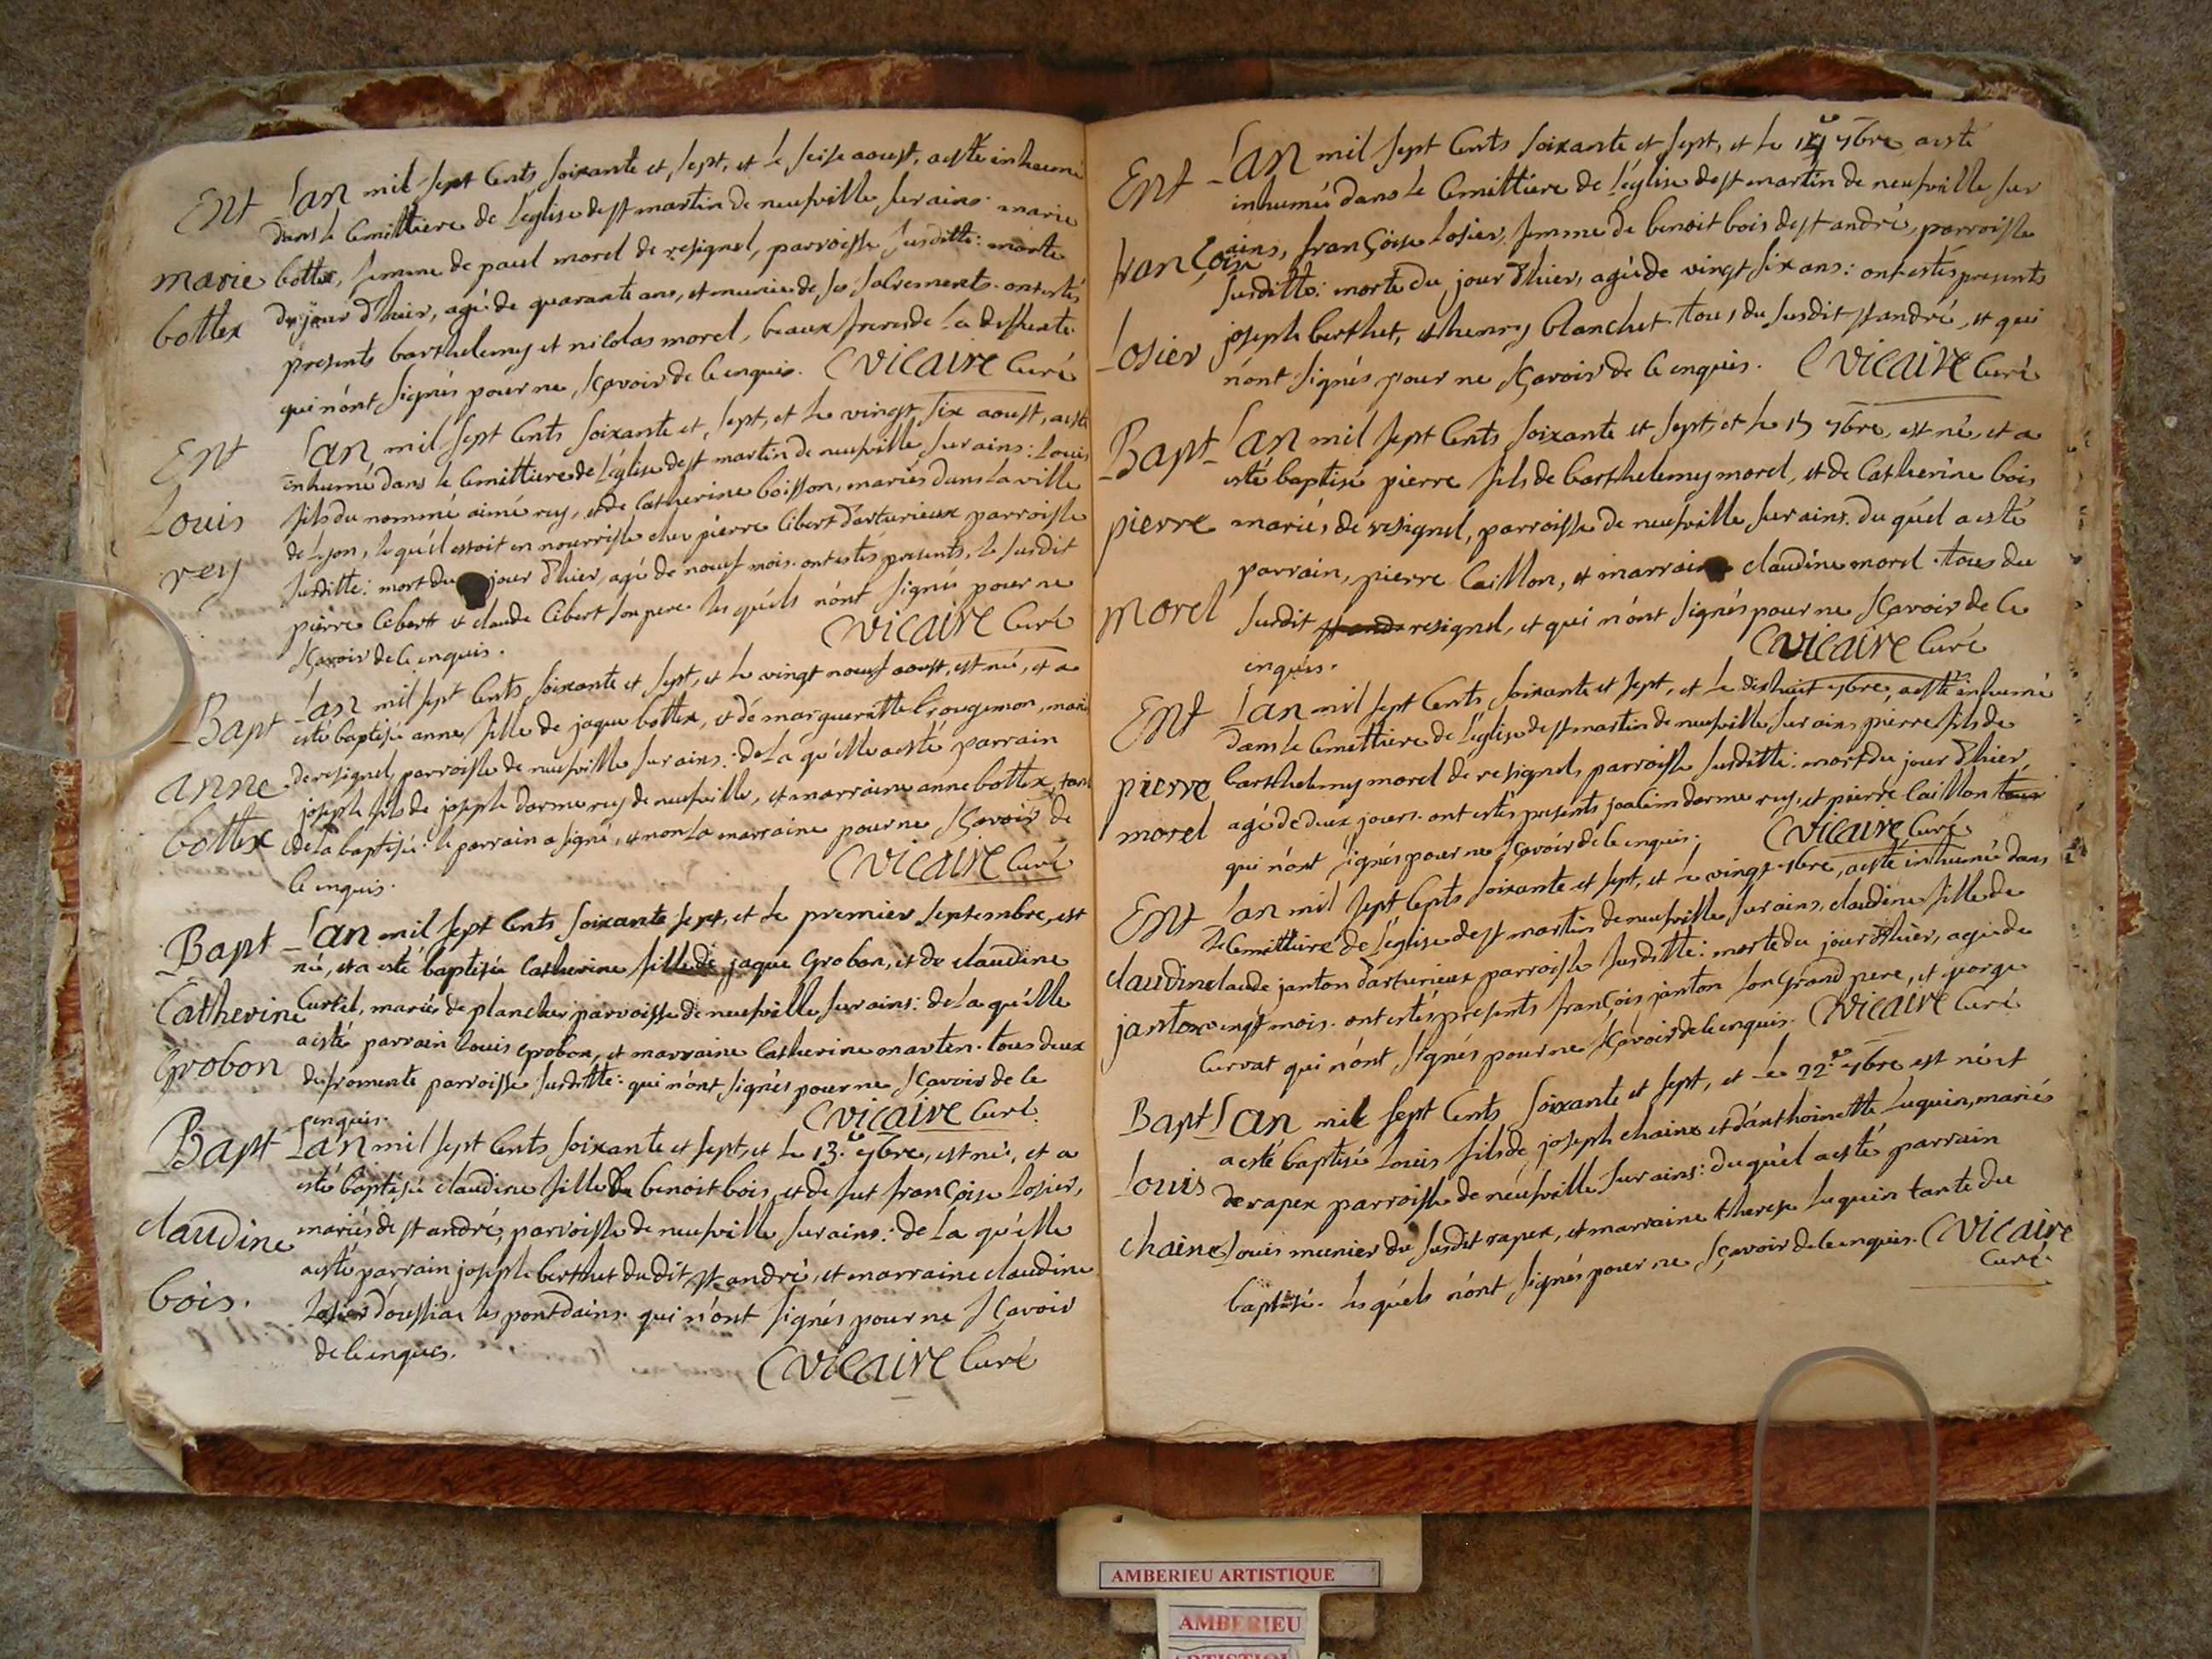 Ent
marie
bottex
Lan mil sept cents soixante et sept, et le seise aoust, a esté inhumé
dans le cemittiere de l'eglise de st martin de neufville sur ains marie
bottex, femme de paul morel de resignel, parroisse susditte: morte
du jour d'hier, agé de quarante ans, et munie de ses sacrements. ont estés
presents barthelemy et nicolas morel, beaux freres de la deffunte
qui n'ont signés pour ne sçavoir de ce enquis. C vicaire curé
Ent
Louis
rey
Lan mil sept cents soixante et sept, et le vingt six aoust, a esté
inhumé dans le cemittiere de l'église de st martin de neufville sur ains: Louis
fils du nommé aimé rey, et de catherine boisson, mariés dans la ville
de Lyon, le qu'el estoit en nourrisse chez pierre libert d'arturieux parroisse
susditte: mort du jour d'hier, agé de neuf mois. ont estés presents, le susdit
pierre libert et claude libert son pere les qu'els n'ont signé pour ne
sçavoir de ce enquis. C vicaire curé
Bapt
anne
bottex
Lan mil sept cents soixante et sept, et le vingt neuf aoust, est né, et a
esté baptisée anne, fille de jaque bottex, et de marguerite brougemon, mariés
de resignel, parroisse de neufville sur ains: de la qu'elle a esté parrain
joseph fils de joseph darme rey de neufville, et marraine anne bottex, tante
de la baptisée: le parrain a signé, et non la marraine pour ne sçavoir de
ce enquis. C vicaire curé
Bapt
Catherine
Grobon
Lan mil sept cents soixante sept, et le premier septembre, est
né, et a esté baptisée catherine fille de jaque Grobon, et de claudine
curtil, mariés de planches parroisse de neufville sur ains: de la qu'elle
a esté parrain Louis grobon, et marraine catherine marten. tous deux
de fromente parroisse susditte: qui n'ont signés pour ne sçavoir de ce
enquis. C vicaire curé
Bapt
claudine
bois.
Lan mil sept cents soixante et sept, et le 13.e 7bre, est né, et a
esté baptisée claudine fille de benoit bois, et de fut françoise Losier,
mariés de st andré, parroisse de neufville sur ains: de la qu'elle
a esté parrain joseph berthet du dit st andré, et marraine claudine
Losier d'oussiat les pontdains. qui n'ont signés pour ne sçavoir
de ce enquis. C vicaire curé
Ent
françoise
Losier
Lan mil sept cents soixante et sept, et le 7bre a esté
inhumée dans le cemittiere de l'église de st martin de neufville sur
ains, françoise Losier, femme de benoit bois de st andré, parroisse
susditte: morte du jour d'hier, agée de vingt six ans: ont estés presents
joseph berthet, et henry blanchet. tous du susdit st andré, et qui
n'ont signés pour ne sçavoir de ce enquis. C vicaire curé
Bapt
pierre
morel
Lan mil sept cents soixante et sept, et le 15 7bre, est né, et a
esté baptisé pierre fils de barthelemy morel, et de catherine bois
mariés de resignel, parroisse de neufville sur ains. du qu'el a esté
parrain, pierre caillon, et marraine claudine morel. tous du
susdit st andr resignel, et qui n'ont signés pour ne sçavoir de ce
enquis. C vicaire curé
Ent
pierre
morel
Lan mil sept cents soixante et sept, et le dixhuit 7bre, a esté inhumé
dans le cemittiere de l'église de st martin de neufville sur ains pierre fils de
barthelemy morel de resignel, parroisse susditte: mort du jour d'hier,
agé de deux jours. ont estés presents joachim darme rey, et pierre caillon tous
qui n'ont signés pour ne sçavoir de ce enquis. C vicaire curé
Ent
claudine
janton
Lan mil sept cents soixante et sept, et le vingt 7bre, a esté inhumée dans
le cemittiere de l'église de st martin de neufville sur ains, claudine fille de
claude janton d'arturieux parroisse susditte: morte du jour d'hier, agé de
vingt mois. ont estés presents françois janton son grand pere, et george
curvat qui n'ont signés pour ne sçavoir de ce enquis. C vicaire curé
Bapt
Louis
chaine
Lan mil sept cents soixante et sept, et le 22.e 7bre est né et
a esté baptisé Louis fils de joseph chaine et d'anthoinette Luquin, mariés
de rapex parroisse de neufville sur ains: du qu'el a esté parrain
Louis meunier du susdit rapex, et marraine therese Luquin tante du
baptisé. les qu'els n'ont signés pour ne sçavoir de ce enquis. C vicaire
curé.
AMBERIEU ARTISTIQUE
AMBERIEU